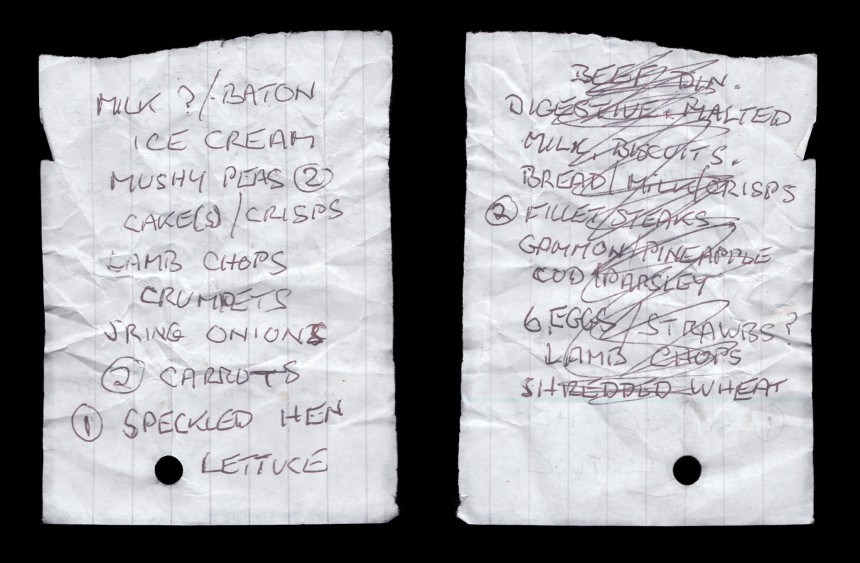 MILK ?/-BATON
ICE CREAM
MUSHY PEAS ②
CAKE(S)/CRISPS
LAMB CHOPS
CRUMPETS
SRING ONIONS
② CARROTS
① SPECKLED HEN
LETTUCE
BEEF DIN.
DIGESTIVE. MALTED
MILK. BISCUITS.
BREAD/MILK/CRISPS
② FILLET/STEAKS
GAMMON/PINEAPPLE
COD/PARSLEY
6 EGGS/STRAWBS?
LAMB CHOPS
SHREDDED WHEAT